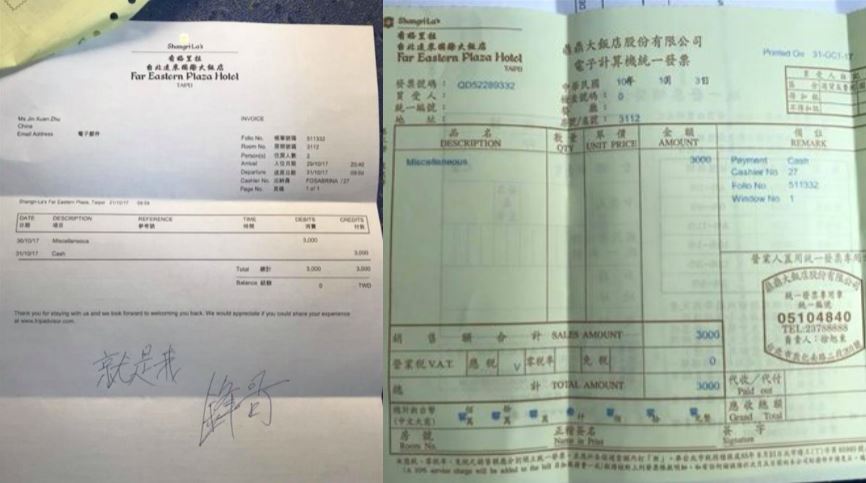 Shangri-La's
香格里拉
台北遠東國際大飯店
Far Eastern Plaza Hotel
TAIPEI
Ms Jin Xuan Zhu
China
Email Address 電子郵件
INVOICE
Folio No. 帳單號碼 511332
Room No. 房間號碼 3112
Person(s) 住房人數 2
Arrival 入住日期 29/10/17 20:40
Departure 退房日期 31/10/17 09:59
Cashier No. 出納員 FOSABRINA /27
Page No. 頁碼 1 of 1
Shangri-La's Far Eastern Plaza, Taipei 31/10/17 09:59
DATE DESCRIPTION REFERENCE TIME DEBITS CREDITS
日期 項目 參考號 時間 消費 付款
30/10/17 Miscellaneous 3,000
31/10/17 Cash 3,000
Total 總計 3,000 3,000
Balance 結餘 0 TWD
Thank you for staying with us and we look forward to welcoming you back. We would appreciate if you could share your experience
at www.tripadvisor.com.
就是我
鋒哥
Shangri-La's
香格里拉
台北遠東國際大飯店
Far Eastern Plaza Hotel
TAIPEI
鼎鼎大飯店股份有限公司
電子計算機統一發票
Printed On 31-OCT-17
發票號碼: QD52289332
中華民國 10月 31日
買受人:
檢查號碼: 0
統一編號:
地址:
房號/桌號: 3112
品名 數量 單價 金額 備註
DESCRIPTION QTY UNIT PRICE AMOUNT REMARK
Miscellaneous 3000
Payment Cash
Cashier No 27
Folio No 511332
Window No 1
營業人蓋用統一發票專用
鼎鼎大飯店股份有限公司
統一發票專用章
統一編號
05104840
TEL:23788888
負責人:徐旭東
銷售額合計 SALES AMOUNT 3000
營業稅 V.A.T. 應稅 V 零稅率 免稅 0
總計 TOTAL AMOUNT 3000
代收/代付
Paid out
應收總額
Grand Total
總計新台幣
(中文大寫)
房號
Room No.
正楷簽名
Name in Print
簽字
Signature